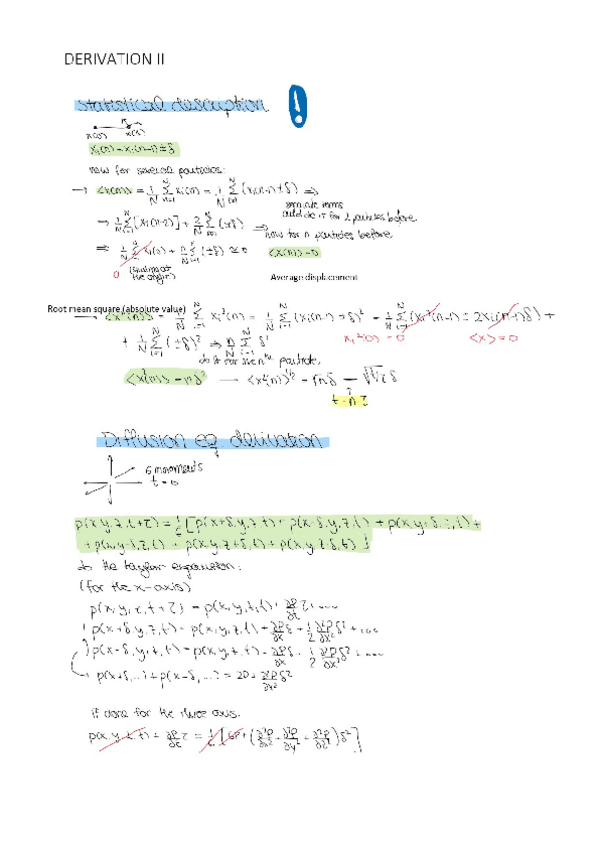 DERIVATION II
statistical description !
x(0) x(n)
xi(n) = xi(n-1) ± δ
now for several particles:
→ <x(n)> = 1/N Σ xi(n) = 1/N Σ (xi(n-1) ± δ) ⇒
→ 1/N Σ [xi(n-2)] + 2/N Σ (±δ) ⇒
now for n particles before
⇒ 1/N Σ xi(0) + n/N Σ (±δ) ≃ 0 <x(n)> = 0
0 (starting at the origin)
Average displacement
Root mean square (absolute value)
<x²(n)> = 1/N Σ xi²(n) = 1/N Σ (xi(n-1) ± δ)² = 1/N Σ (xi²(n-1) ± 2xi(n-1)δ) +
+ 1/N Σ (±δ)² ⇒ n/N Σ δ² xi²(0) = 0 <x> = 0
do it for the nth particle.
<x²(n)> = nδ² → <x²(n)>^1/2 = √n δ = √t/τ δ
t = nτ
Diffusion eq derivation
6 movements
t = 0
p(x,y,z,t+τ) = 1/6 [p(x+δ,y,z,t) + p(x-δ,y,z,t) + p(x,y+δ,z,t) +
+ p(x,y-δ,z,t) + p(x,y,z+δ,t) + p(x,y,z-δ,t)]
do the taylor expansion:
(for the x-axis)
p(x,y,z,t+τ) = p(x,y,z,t) + ∂p/∂t τ + ...
p(x+δ,y,z,t) = p(x,y,z,t) + ∂p/∂x δ + 1/2 ∂²p/∂x² δ² + ...
p(x-δ,y,z,t) = p(x,y,z,t) - ∂p/∂x δ + 1/2 ∂²p/∂x² δ² + ...
→ p(x+δ,...) + p(x-δ,...) = 2p + ∂²p/∂x² δ²
if done for the three axis.
p(x,y,z,t) + ∂p/∂t τ = 1/6 [6p + (∂²p/∂x² + ∂²p/∂y² + ∂²p/∂z²) δ²]